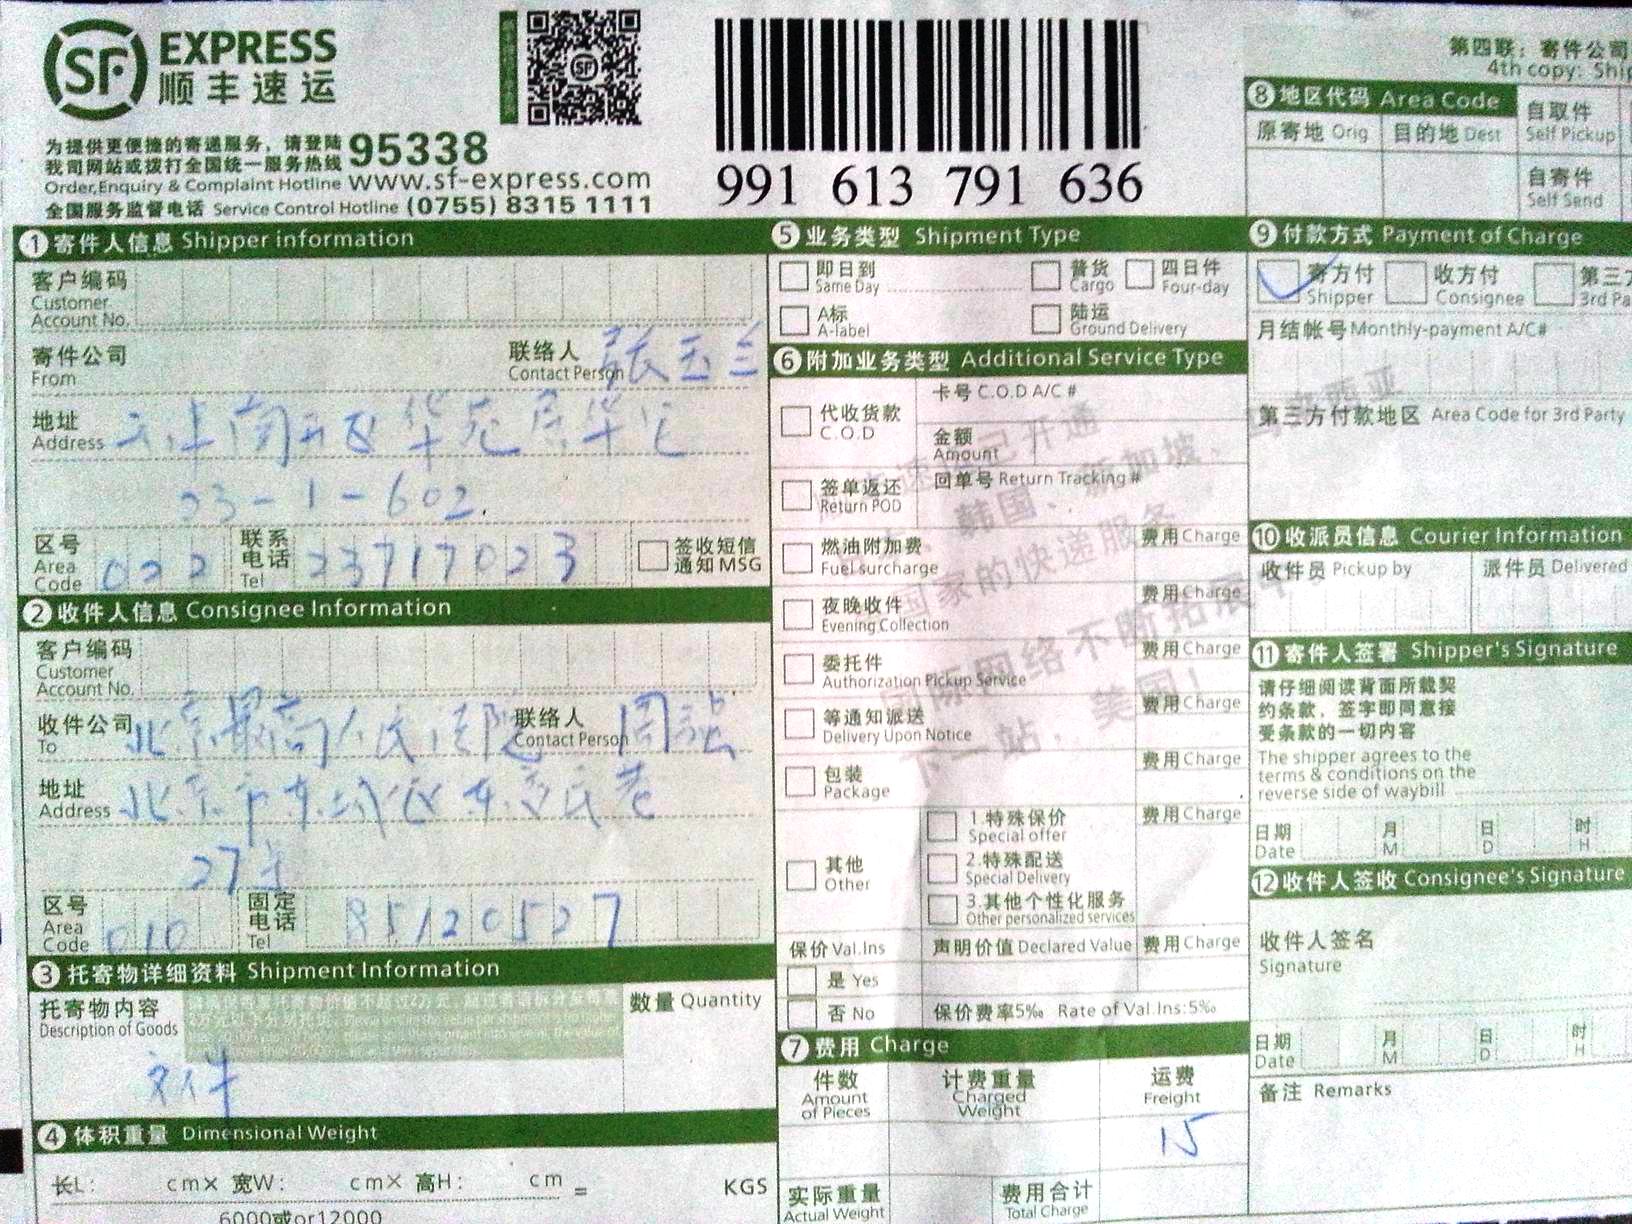 SF EXPRESS
顺丰速运
为提供更便捷的寄递服务，请登陆
我司网站或拨打全国统一服务热线 95338
Order,Enquiry & Complaint Hotline www.sf-express.com
全国服务监督电话 Service Control Hotline (0755) 8315 1111
991 613 791 636
第四联：寄件公司
4th copy: Ship
① 寄件人信息 Shipper information
客户编码
Customer
Account No.
寄件公司
From
联络人
Contact Person 张玉兰
地址
Address 天津南开区华苑京华
23-1-602
区号
Area
Code 022
联系
电话
Tel 23717023
签收短信
通知MSG
② 收件人信息 Consignee Information
客户编码
Customer
Account No.
收件公司
To 北京最高人民法院
联络人
Contact Person 周强
地址
Address 北京市东城区东交民巷
27号
区号
Area
Code 010
固定
电话
Tel 85120527
③ 托寄物详细资料 Shipment Information
托寄物内容
Description of Goods
数量 Quantity
文件
④ 体积重量 Dimensional Weight
长L: cm× 宽W: cm× 高H: cm = KGS
6000或or12000
⑤ 业务类型 Shipment Type
即日到
Same Day
普货
Cargo
四日件
Four-day
A标
A-label
陆运
Ground Delivery
⑥ 附加业务类型 Additional Service Type
代收货款
C.O.D
卡号 C.O.D A/C #
金额
Amount
签单返还
Return POD
回单号 Return Tracking #
燃油附加费
Fuel surcharge
费用 Charge
夜晚收件
Evening Collection
费用 Charge
委托件
Authorization Pickup Service
费用 Charge
等通知派送
Delivery Upon Notice
费用 Charge
包装
Package
费用 Charge
其他
Other
1.特殊保价
Special offer
费用 Charge
2.特殊配送
Special Delivery
3.其他个性化服务
Other personalized services
保价 Val.Ins
声明价值 Declared Value
费用 Charge
是 Yes
否 No
保价费率5‰ Rate of Val.Ins:5‰
已开通
韩国、新加坡、
国家的快递服务
国际网络不断拓展中
下一站，美国！
⑦ 费用 Charge
件数
Amount
of Pieces
计费重量
Charged
Weight
运费
Freight
15
实际重量
Actual Weight
费用合计
Total Charge
⑧ 地区代码 Area Code
原寄地 Orig
目的地 Dest
自取件
Self Pickup
自寄件
Self Send
⑨ 付款方式 Payment of Charge
寄方付
Shipper
收方付
Consignee
第三方
3rd Pa
月结帐号 Monthly-payment A/C#
第三方付款地区 Area Code for 3rd Party
⑩ 收派员信息 Courier Information
收件员 Pickup by
派件员 Delivered
⑪ 寄件人签署 Shipper's Signature
请仔细阅读背面所载契
约条款，签字即同意接
受条款的一切内容
The shipper agrees to the
terms & conditions on the
reverse side of waybill
日期
Date
月
M
日
D
时
H
⑫ 收件人签收 Consignee's Signature
收件人签名
Signature
日期
Date
月
M
日
D
时
H
备注 Remarks